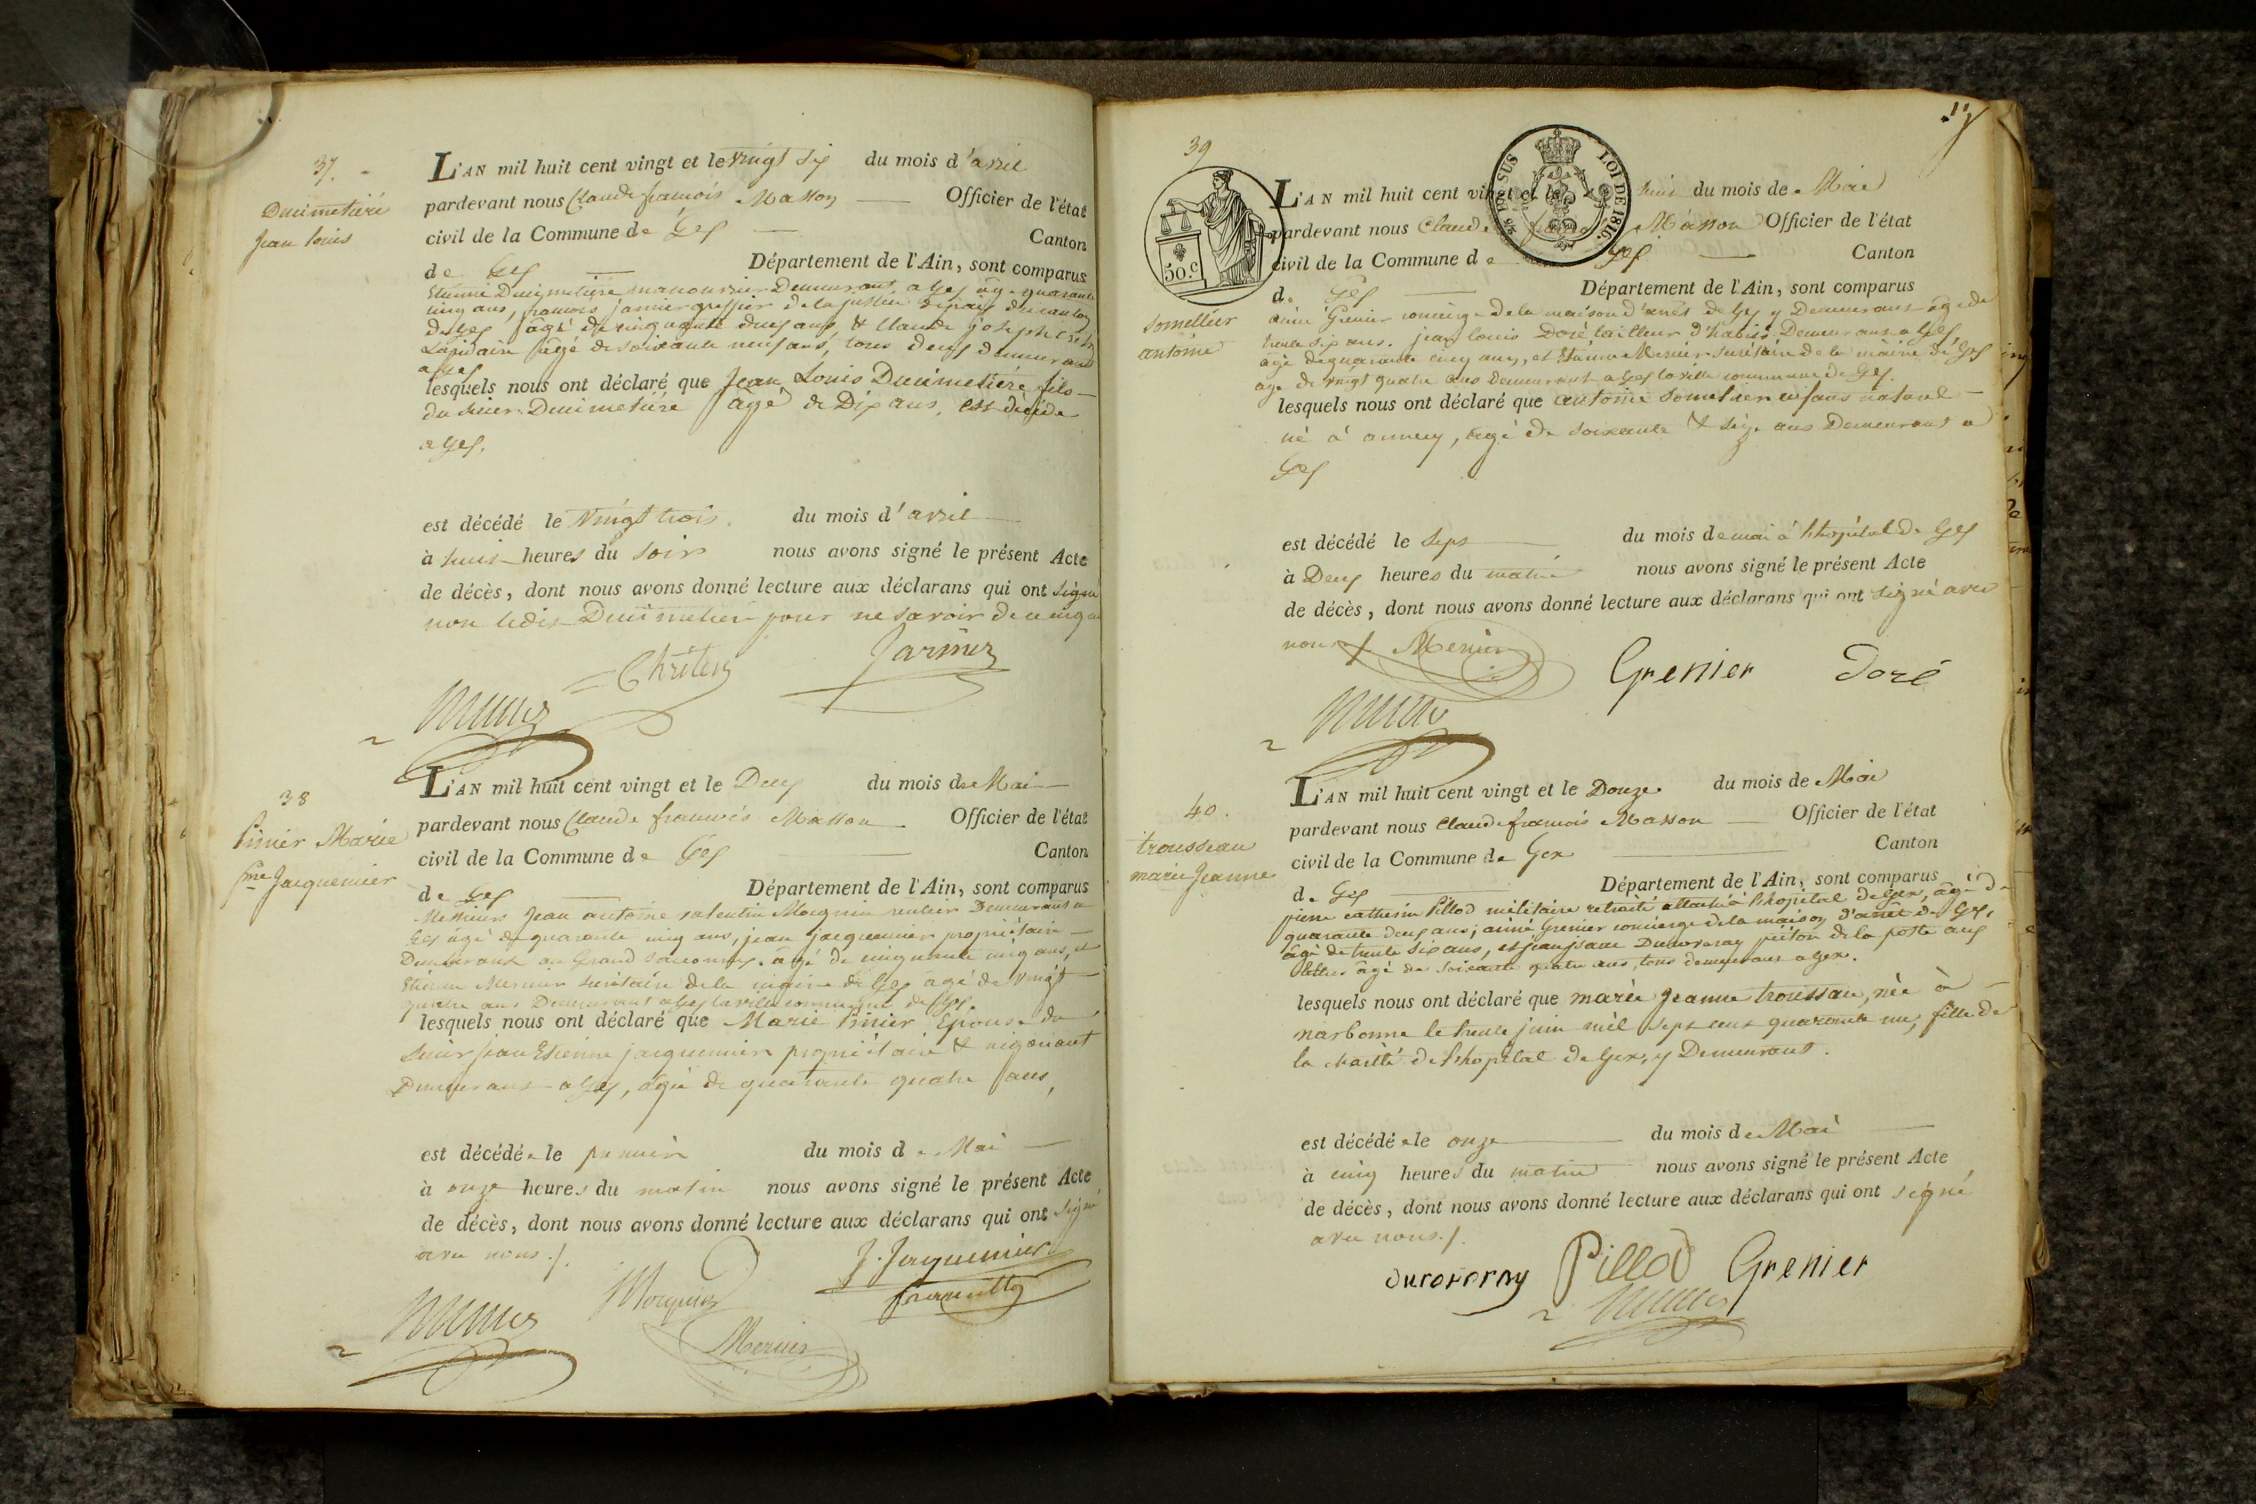 37.
Ducimetière
Jean louis
L'AN mil huit cent vingt et le vingt six du mois d'avril
pardevant nous Claude françois Masson Officier de l'état
civil de la Commune de Gex Canton
de Gex Département de l'Ain, sont comparus
Etienne Ducimetière manouvrier Demeurant a Gex âgé quarante
cinq ans, françois Jarmier greffier de la justice de paix du canton
de Gex âgé de cinquante deux ans, & Claude joseph
Lapidaire âgé de soixante neuf ans, tous deux demeurant
a Gex
lesquels nous ont déclaré que Jean Louis Ducimetière fils
du sieur Ducimetière âgé de Dix ans, est décédé
a Gex.
est décédé le Vingt trois du mois d'avril
à huit heures du soir nous avons signé le présent Acte
de décès, dont nous avons donné lecture aux déclarans qui ont signé
non ledit Ducimetière pour ne savoir de ce enquis
Chrîten Jarmier
38
Pinier Marie
fme Jacquemier
L'AN mil huit cent vingt et le Deux du mois de Mai
pardevant nous Claude francois Masson Officier de l'état
civil de la Commune de Gex Canton
de Gex Département de l'Ain, sont comparus
Messieurs Jean antoine valentin Morquin rentier Demeurant a
Gex âgé de quarante cinq ans, jean jacquemier propriétaire
Demeurant au Grand Saconnex agé de cinquante cinq ans, et
Etienne Mernier secrétaire de la mairie de Gex âgé de vingt
quatre ans Demeurant a Gex la ville commune de Gex.
lesquels nous ont déclaré que Marie Pinier Epouse du
sieur Jean Etienne jacquemier propriétaire & négociant
Demeurant a Gex, âgée de quarante quatre ans,
est décédée le premier du mois de Mai
à onze heures du matin nous avons signé le présent Acte
de décès, dont nous avons donné lecture aux déclarans qui ont signé
avec nous./.
Morquin J. Jaquemier
Mernier
39
somellier
antoine
50.c
28 P. EN SUS LOI DE 1816.
L'AN mil huit cent vingt et le huit du mois de Mai
pardevant nous Claude Masson Officier de l'état
civil de la Commune de Gex Canton
de Gex Département de l'Ain, sont comparus
aimé Grenier concierge de la maison d'arrêt de Gex y Demeurant âgé de
trente six ans. jean louis Doré tailleur d'habits Demeurant a Gex,
âgé de quarante cinq ans, et Etienne Mernier secrétaire de la mairie de Gex
âgé de vingt quatre ans Demeurant a Gex la ville commune de Gex.
lesquels nous ont déclaré que antoine enfant naturel
né à annecy, âgé de soixante & seize ans Demeurant a
Gex
est décédé le sept du mois de mai à l'hôpital de Gex
à Deux heures du matin nous avons signé le présent Acte
de décès, dont nous avons donné lecture aux déclarans qui ont signé avec
nous./. Mernier Grenier Doré
40.
trousseau
marie Jeanne
L'AN mil huit cent vingt et le Douze du mois de Mai
pardevant nous Claude francois Masson Officier de l'état
civil de la Commune de Gex Canton
de Gex Département de l'Ain, sont comparus
pierre catherin Pillod militaire retraité attaché à l'hopital de Gex, âgé de
quarante deux ans; aimé Grenier concierge de la maison d'arrêt de Gex,
âgé de trente six ans, et jean isaac Duroveray piéton de la poste aux
lettres âgé de soixante quatre ans, tous demeurant a Gex.
lesquels nous ont déclaré que marie Jeanne troussau, née à
narbonne le trente juin mil sept cent quarante un, fille de
la charité de l'hopital de Gex, y Demeurant.
est décédée le onze du mois de Mai
à cinq heures du matin nous avons signé le présent Acte
de décès, dont nous avons donné lecture aux déclarans qui ont signé
avec nous./.
Duroveray Pillod Grenier